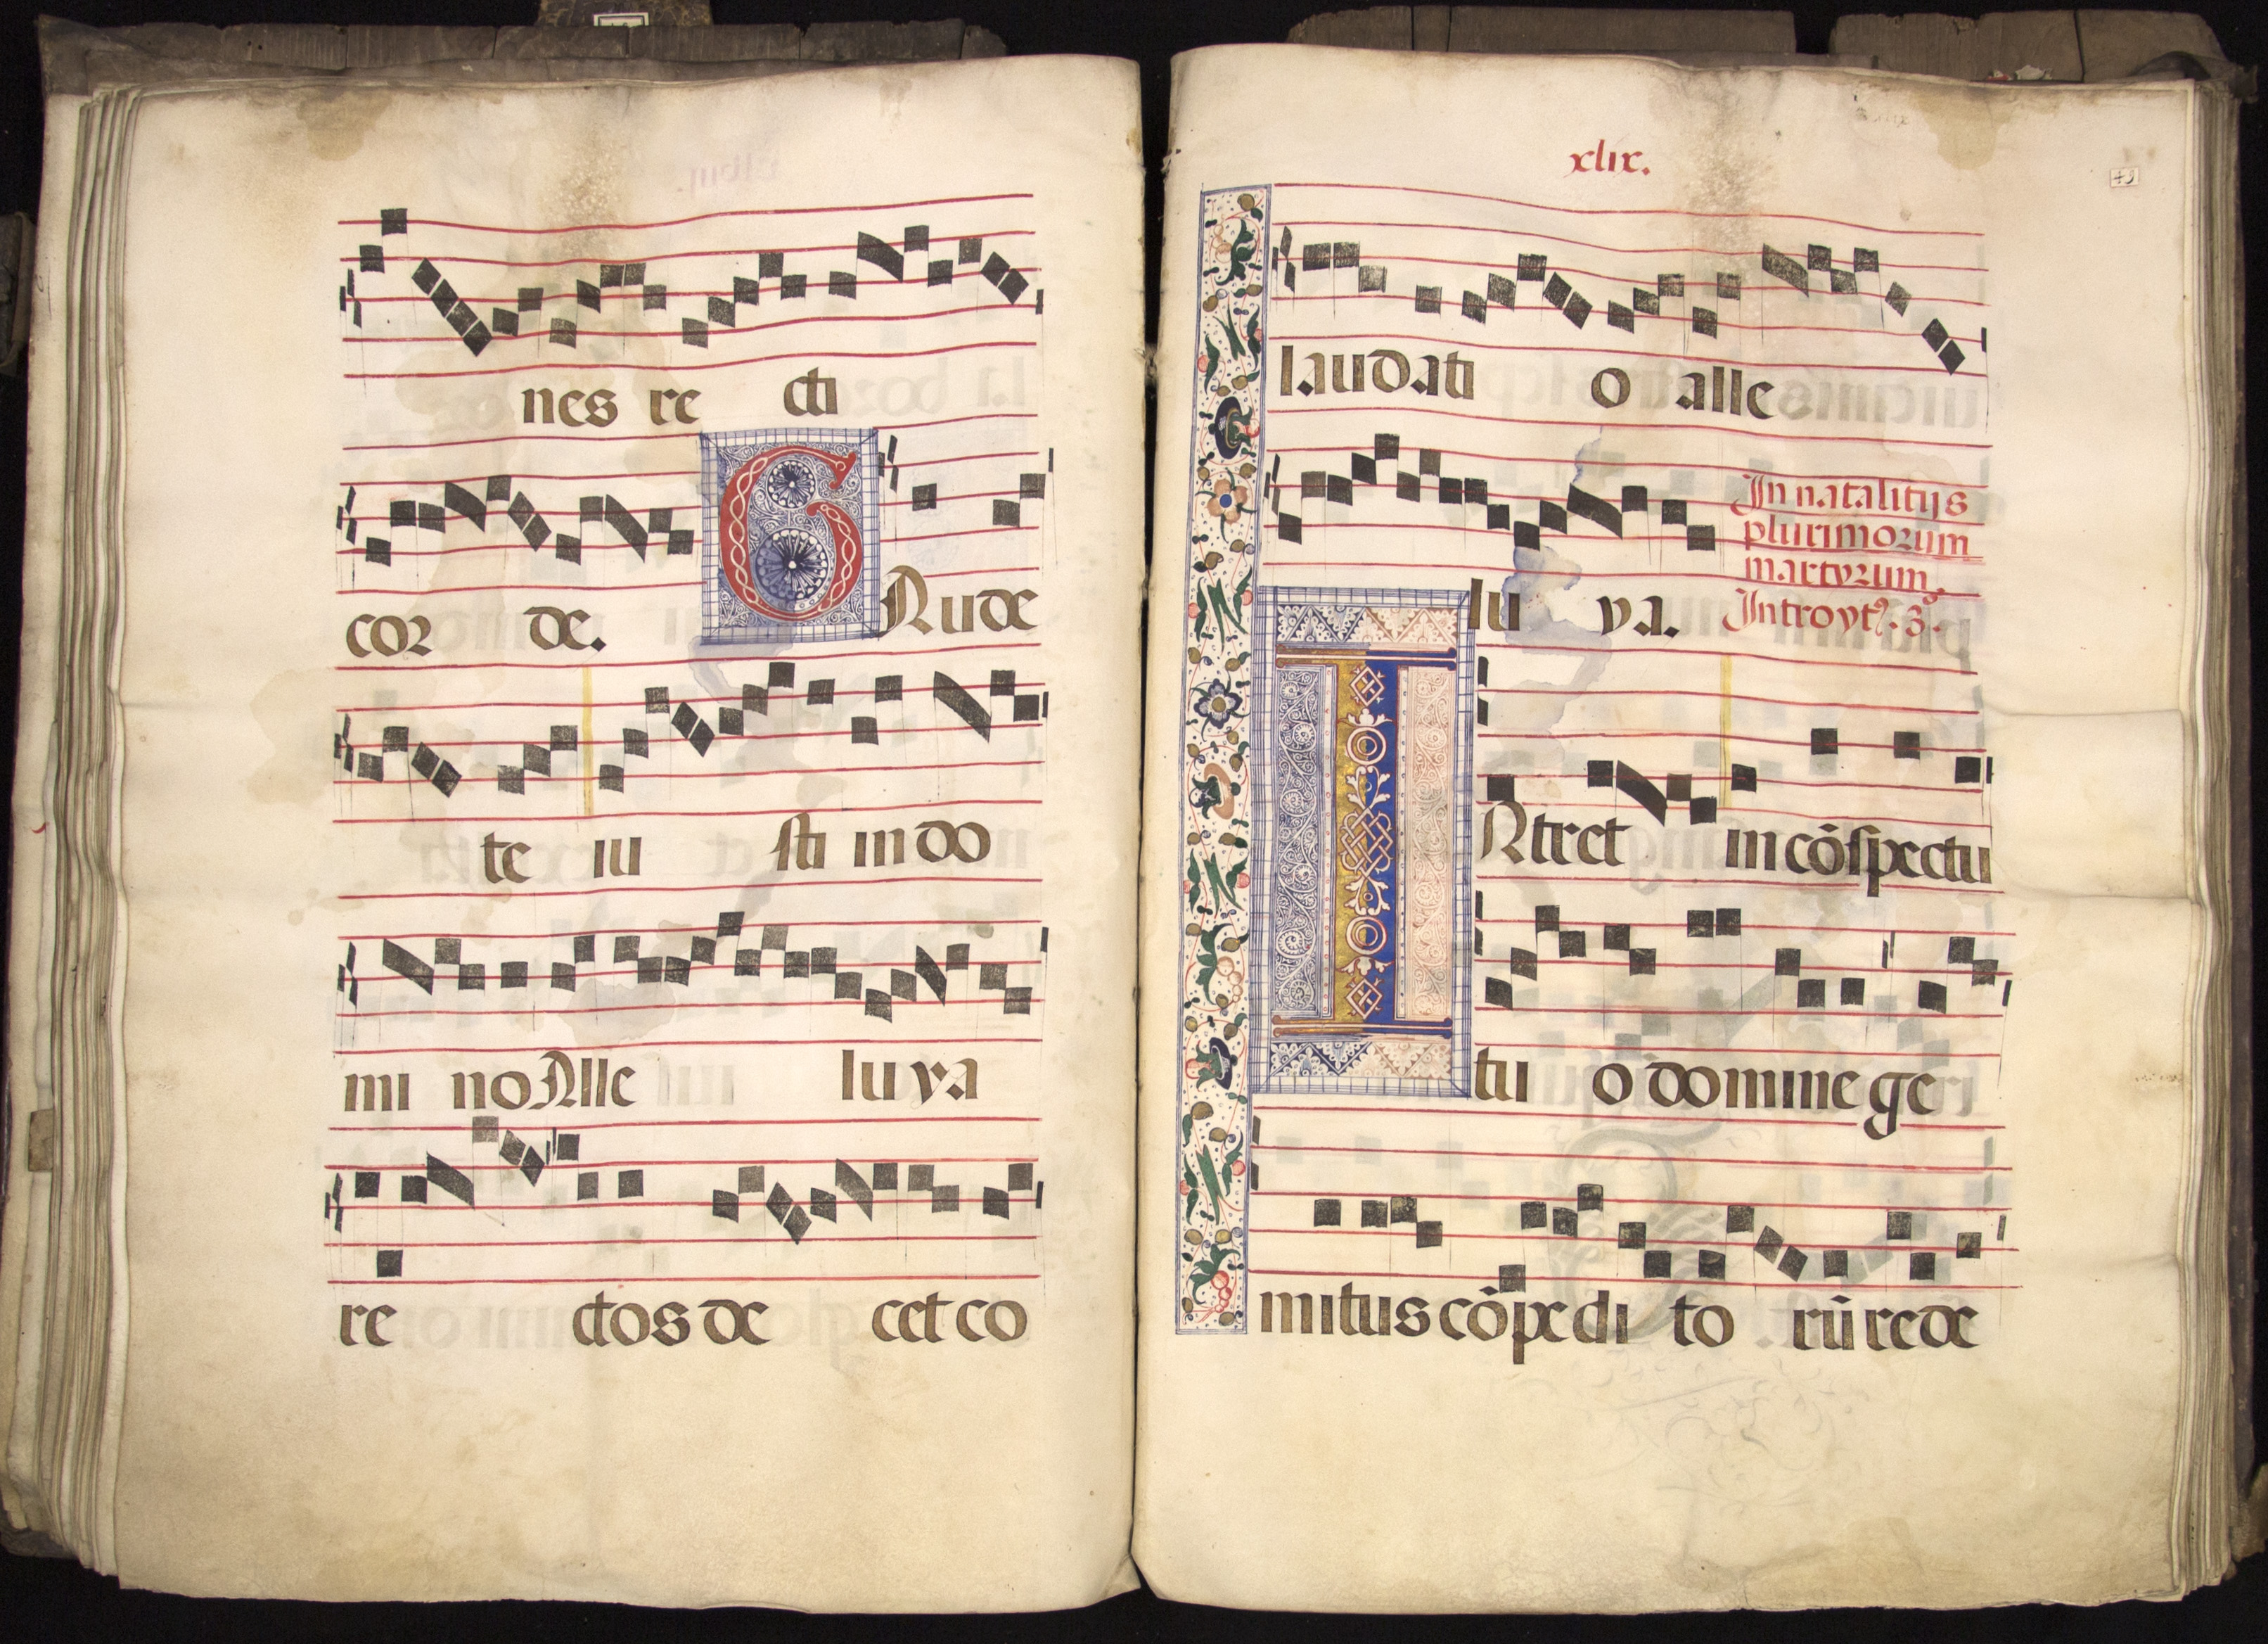 nes re cti
cor de. GAude
te iu sti in do
mi no Alle lu ya
re ctos de cet co
xlix.
49
laudati o alle
lu ya.
In natalitijs
plurimorum
martyrum.
Introyt9. 3º.
INtret in cõspectu
tu o domine ge
mitus cõpedi to rũ rede